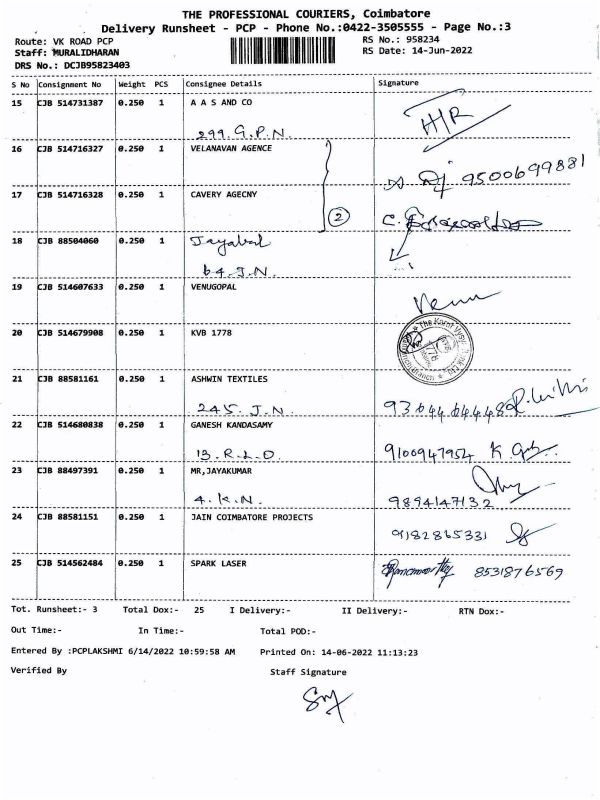 THE PROFESSIONAL COURIERS, Coimbatore
Delivery Runsheet - PCP - Phone No.:0422-3505555 - Page No.:3
Route: VK ROAD PCP RS No.: 958234
Staff: MURALIDHARAN RS Date: 14-Jun-2022
DRS No.: DCJB95823403
S No Consignment No Weight PCS Consignee Details Signature
15 CJB 514731387 0.250 1 A A S AND CO
299. G.P.N.
16 CJB 514716327 0.250 1 VELANAVAN AGENCE
9500699881
17 CJB 514716328 0.250 1 CAVERY AGECNY
2
18 CJB 88504060 0.250 1 Jayabal
64. J.N.
19 CJB 514607633 0.250 1 VENUGOPAL
Venu
20 CJB 514679908 0.250 1 KVB 1778
The Karur Vysya Bank Ltd
1778
21 CJB 88581161 0.250 1 ASHWIN TEXTILES
245. J.N.
22 CJB 514680838 0.250 1 GANESH KANDASAMY
13. R.L.D. 9100947954
23 CJB 88497391 0.250 1 MR,JAYAKUMAR
4. K.N. 9894147132
24 CJB 88581151 0.250 1 JAIN COIMBATORE PROJECTS
9182865331
25 CJB 514562484 0.250 1 SPARK LASER
8531876569
Tot. Runsheet:- 3 Total Dox:- 25 I Delivery:- II Delivery:- RTN Dox:-
Out Time:- In Time:- Total POD:-
Entered By :PCPLAKSHMI 6/14/2022 10:59:58 AM Printed On: 14-06-2022 11:13:23
Verified By Staff Signature